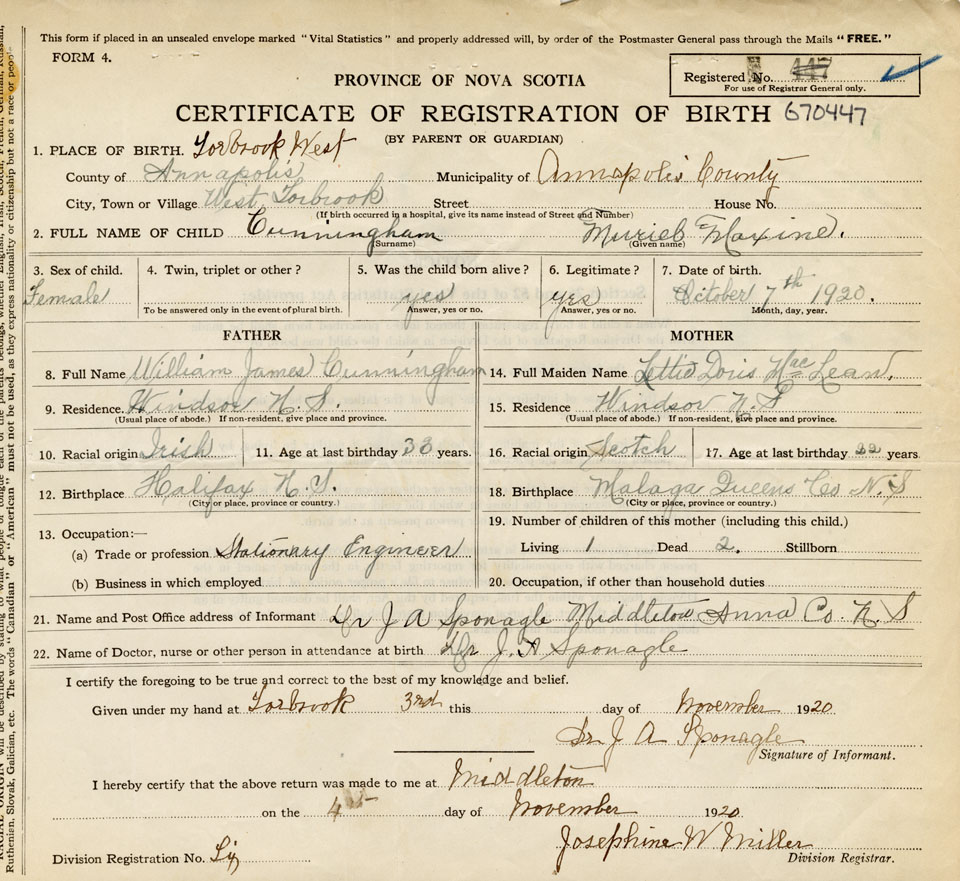 This form if placed in an unsealed envelope marked "Vital Statistics" and properly addressed will, by order of the Postmaster General pass through the Mails "FREE."
FORM 4.
Registered No. 447
For use of Registrar General only.
PROVINCE OF NOVA SCOTIA
CERTIFICATE OF REGISTRATION OF BIRTH 670447
(BY PARENT OR GUARDIAN)
1. PLACE OF BIRTH. Torbrook West
County of Annapolis Municipality of Annapolis County
City, Town or Village West Torbrook Street House No.
(If birth occurred in a hospital, give its name instead of Street and Number)
2. FULL NAME OF CHILD Cunningham Muriel Maxine.
(Surname) (Given name)
3. Sex of child. 4. Twin, triplet or other? 5. Was the child born alive? 6. Legitimate? 7. Date of birth.
Female yes yes October 7th 1920.
To be answered only in the event of plural birth. Answer, yes or no. Answer, yes or no. Month, day, year.
FATHER MOTHER
8. Full Name William James Cunningham 14. Full Maiden Name Lettie Doris MacLean.
9. Residence. Windsor N.S. 15. Residence Windsor N.S
(Usual place of abode.) If non-resident, give place and province. (Usual place of abode.) If non-resident, give place and province.
10. Racial origin Irish 11. Age at last birthday 33 years. 16. Racial origin Scotch 17. Age at last birthday 22 years.
12. Birthplace Halifax N.S. 18. Birthplace Malaga Queens Co N.S
(City or place, province or country.) (City or place, province or country.)
13. Occupation:— 19. Number of children of this mother (including this child.)
(a) Trade or profession Stationary Engineer Living 1 Dead 2. Stillborn
(b) Business in which employed 20. Occupation, if other than household duties
21. Name and Post Office address of Informant Dr J A Sponagle Middleton Anna Co. N. S
22. Name of Doctor, nurse or other person in attendance at birth Dr J. A Sponagle
I certify the foregoing to be true and correct to the best of my knowledge and belief.
Given under my hand at Torbrook 3rd this day of November 1920
Dr J A Sponagle
Signature of Informant.
I hereby certify that the above return was made to me at Middleton
on the 4 day of November 1920
Josephine W Miller
Division Registrar.
Division Registration No.
RACIAL ORIGIN will be described by stating to what people or
Ruthenian, Slovak, Galician, etc. The words "Canadian" or "American" must not be used, as they express nationality or citizenship but not a race or people.